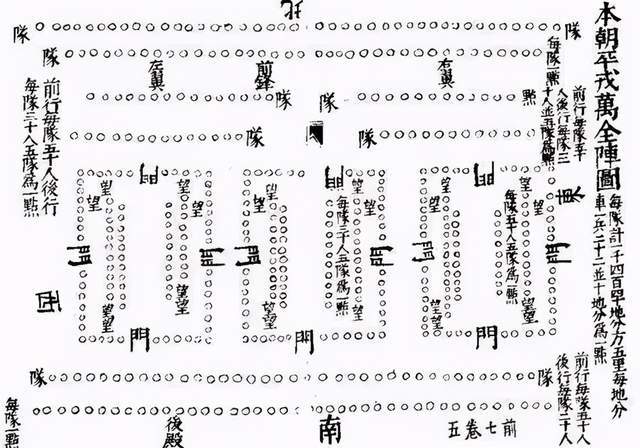 本朝平戎萬全陣圖
每隊計一千四百四十地分方五里每地分
車一兵二十二並十地分為一點
北
隊
隊
隊
前行每隊五十
人後行每隊三
十人並五隊為一點
每隊一點
左翼
前鋒
右翼
隊
隊
點
隊
隊
前行每隊五十人後行
每隊三十人五隊為一點
東
西
門
門
門
望
望
望
望
望
望
望
望
望
每隊三十人五隊為一點
每隊五十人五隊為一點
門
門
門
門
門
望
望
望
望
望
望
望
望
門
門
門
隊
隊
前行每隊五十人
後行每隊三十人
每隊一點
後殿
南
前七卷五